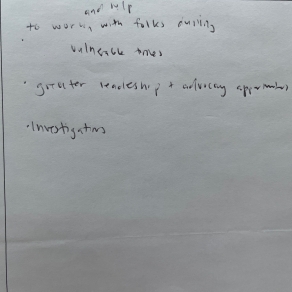 and help
to working with folks during
vulnerable times
· greater leadership + advocacy
· Investigations